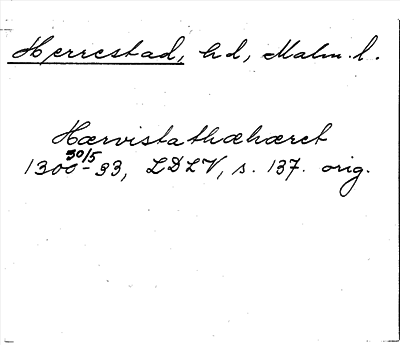 Herrestad, hd, Malm. l.
Hærvistathæhæret
30/5
1300-93, LDLV, s. 137. orig.